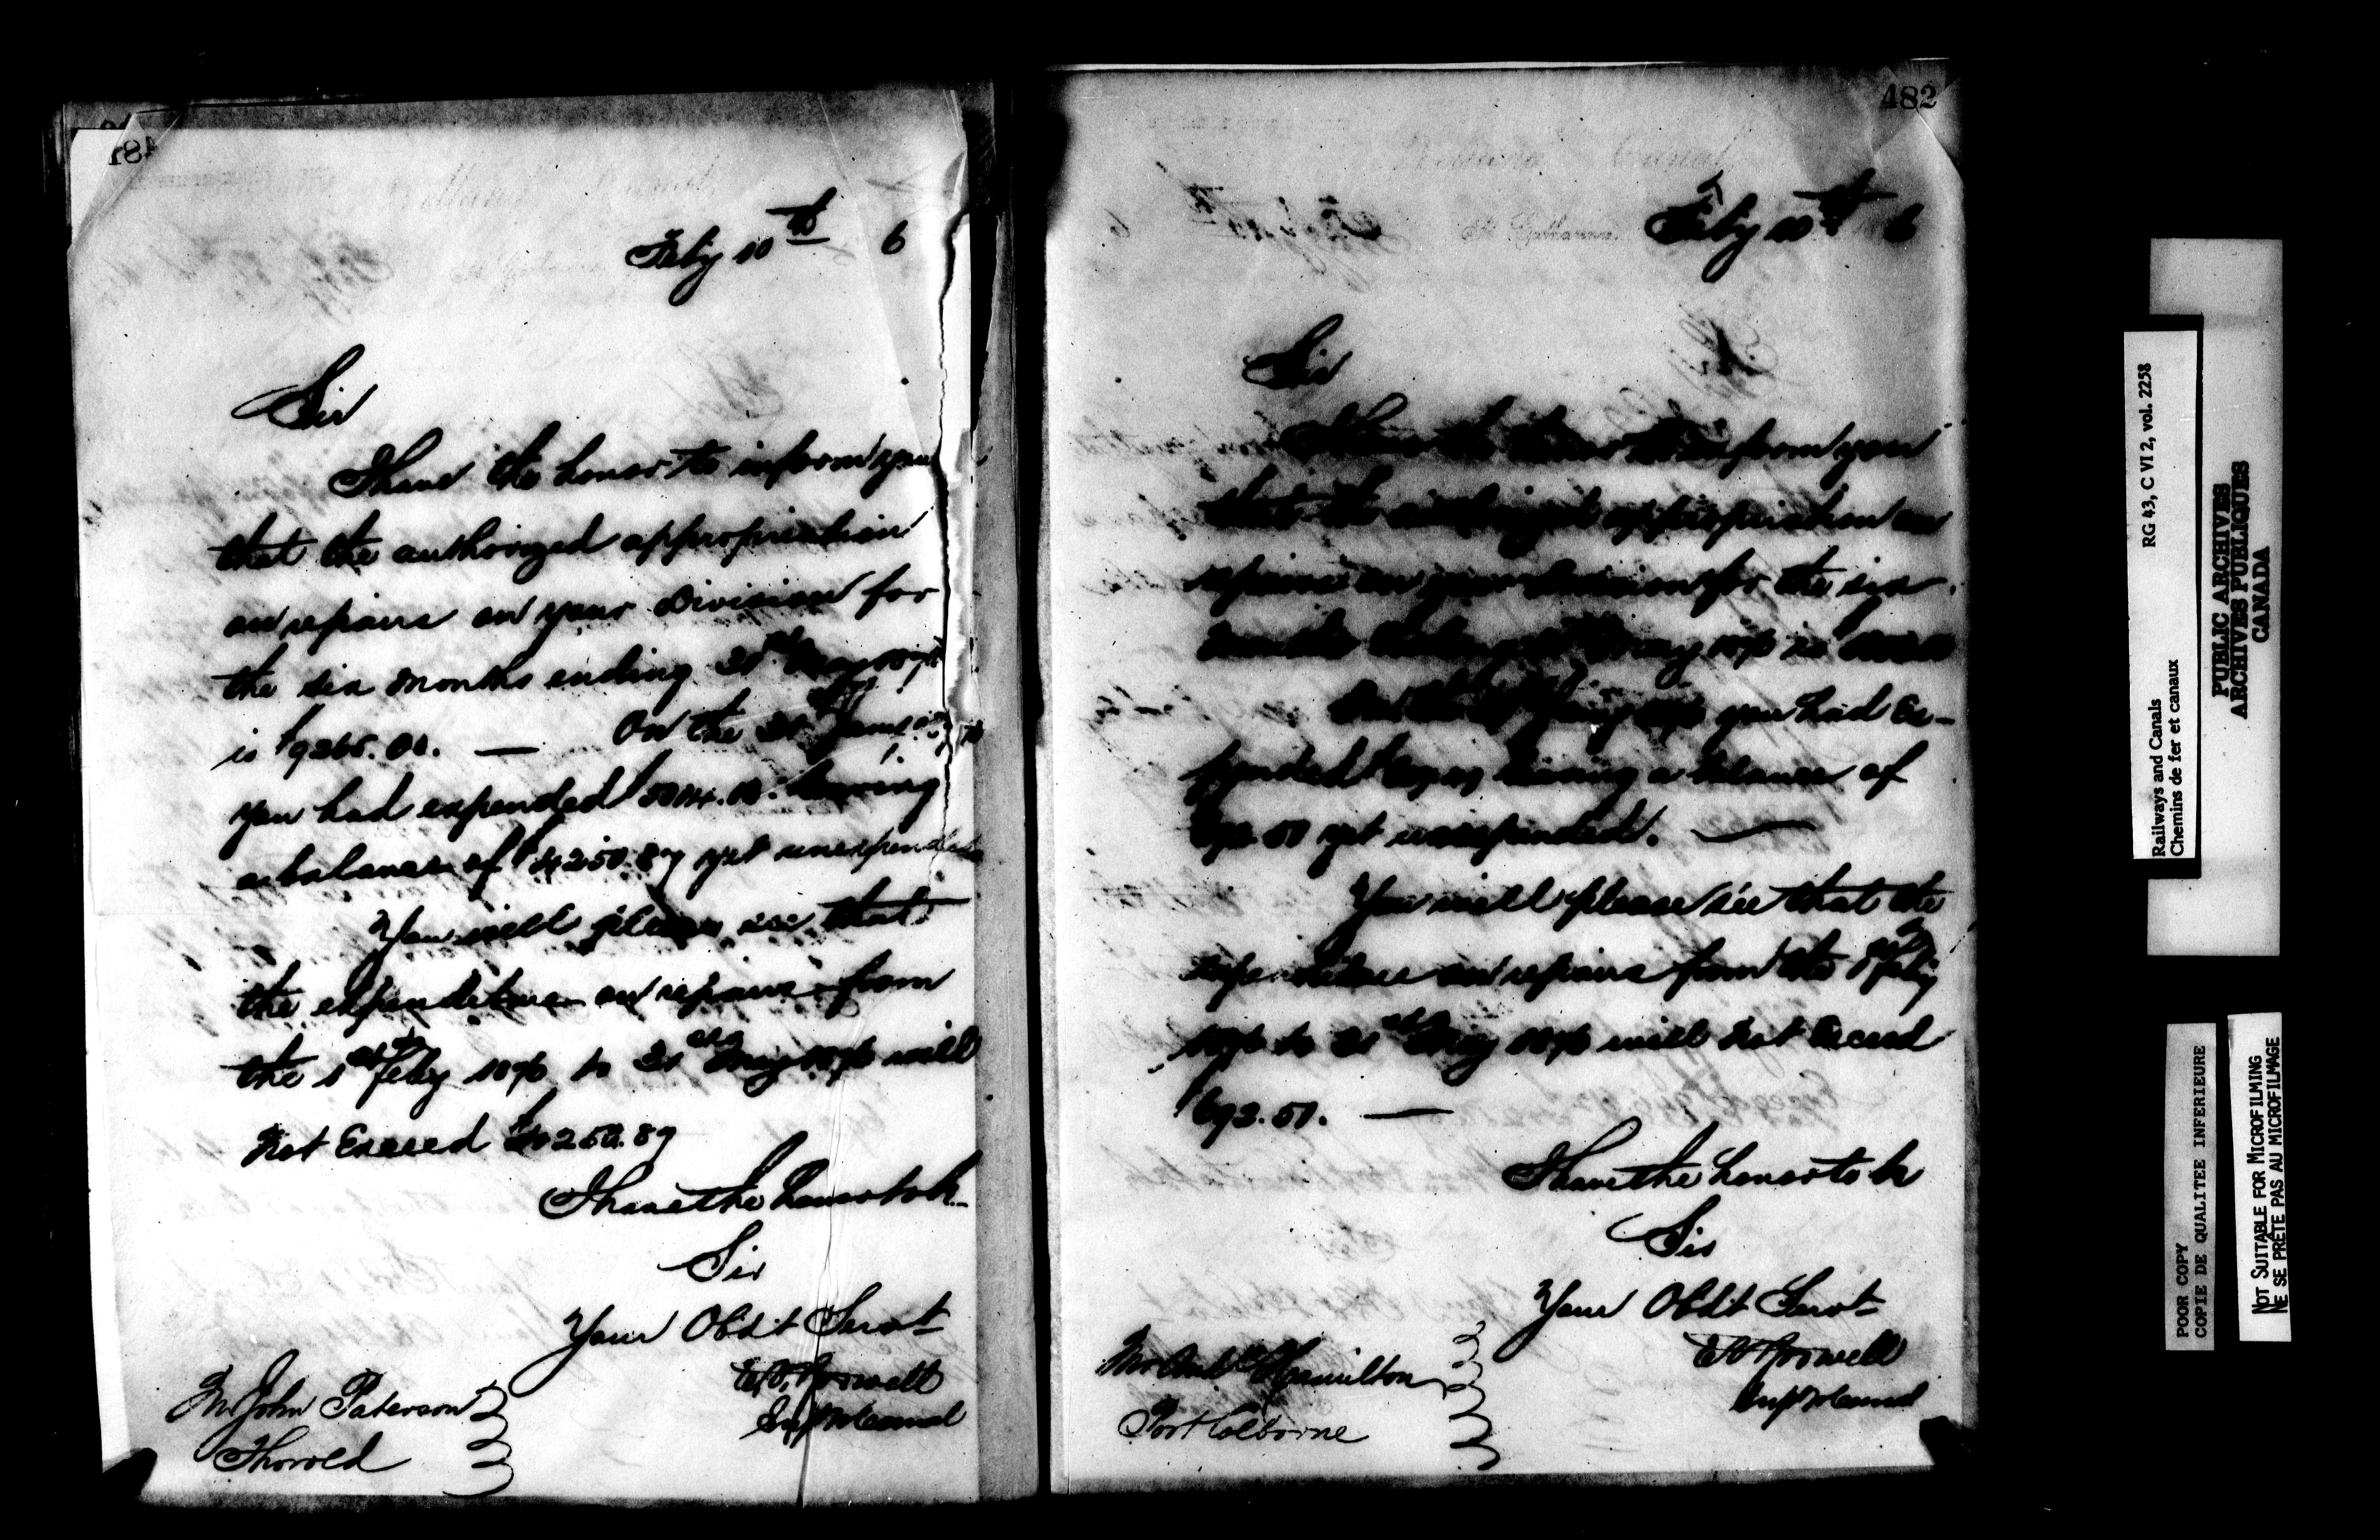 481
Welland Canal
Feby 10th 6
Sir
I have the honor to inform you
that the authorized appropriation
on repairs on your Division for
the six months ending 31st May 1876
is $9265.01. — On the 31st January 76
you had expended $5014. leaving
a balance of $4250.87 yet unexpended
You will please see that
the expenditure on repairs from
the 1st Feby 1876 to 31st May 1876 will
not Exceed $4250.87
I have the honor to be
Sir
Your Obdt Servt
E.V. Bodwell
Supt W Canal
Mr John Paterson
Thorold
482
Welland Canal
St Catharines Feby 10th 187 6
Sir
I have the honor to inform you
that the authorized appropriation on
repairs on your Division for the six
months ending 31st May 1876 is
On the 31st Jany 1876 you had Ex-
pended leaving a balance of
$692.51 yet unexpended. —
You will please see that the
expenditure on repairs from the 1st Feby
1876 to 31st May 1876 will not Exceed
$692.51. —
I have the honor to be
Sir
Your Obdt Servt
E V Bodwell
Supt W Canal
Mr Andw Hamilton
Port Colborne
Railways and Canals RG 43, C VI 2, vol. 2258
Chemins de fer et canaux
PUBLIC ARCHIVES
ARCHIVES PUBLIQUES
CANADA
POOR COPY
COPIE DE QUALITEE INFERIEURE
NOT SUITABLE FOR MICROFILMING
NE SE PRÊTE PAS AU MICROFILMAGE